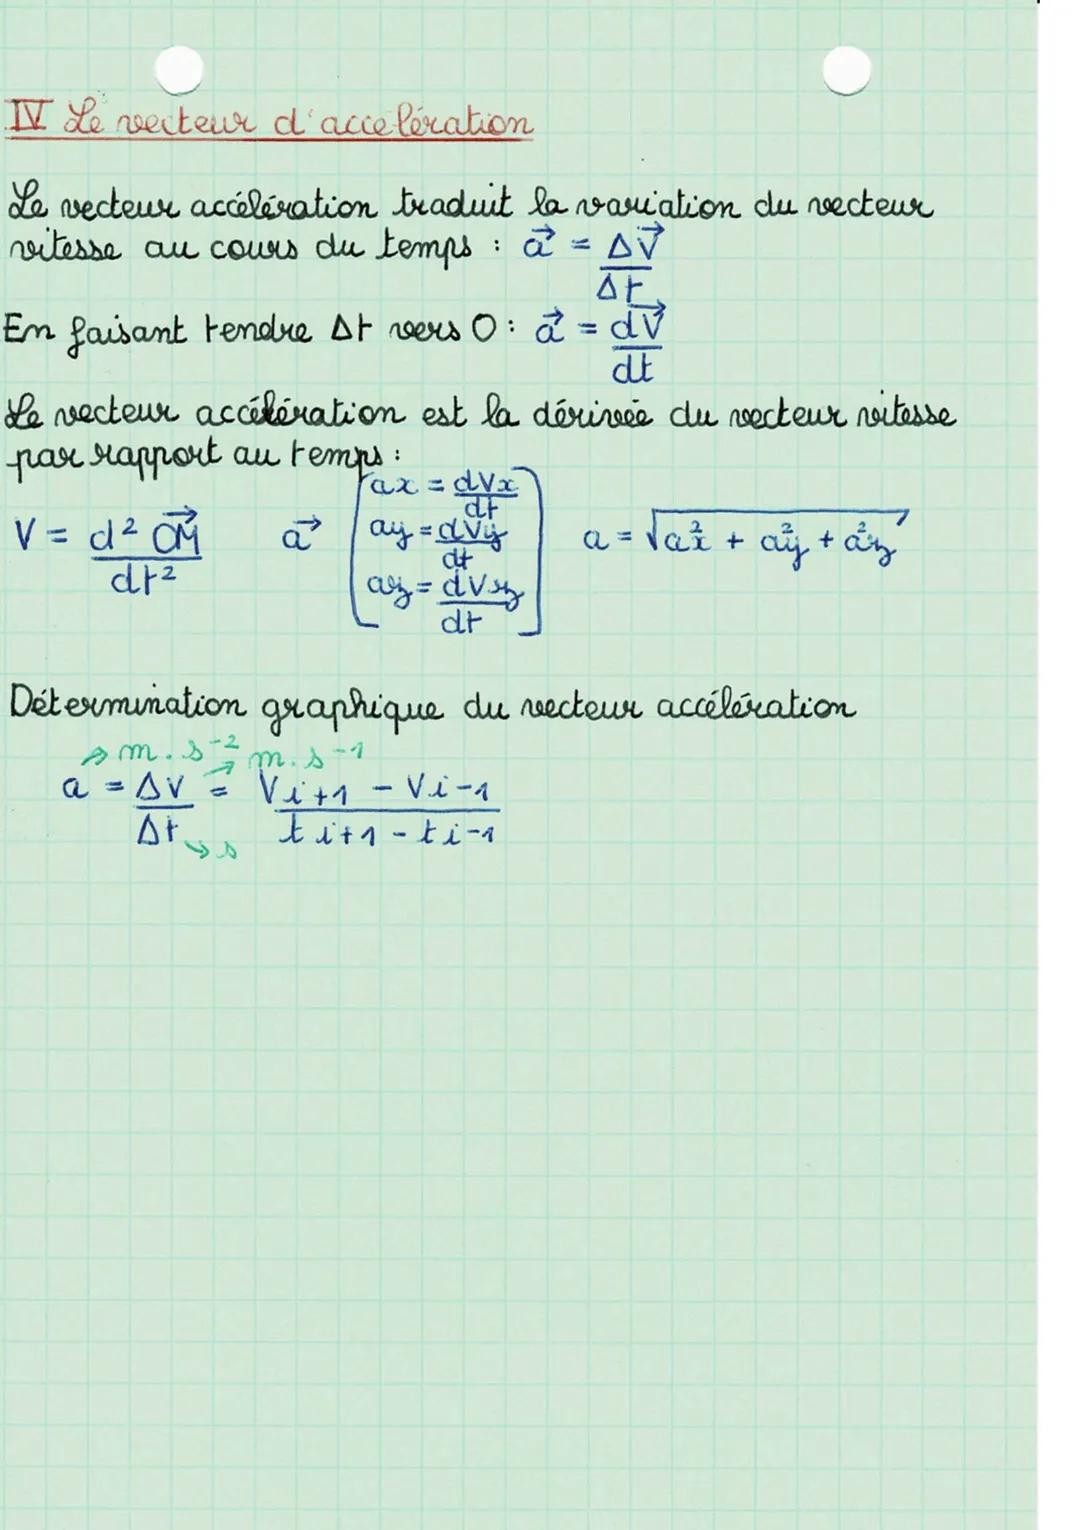 IV Le vecteur d'accélération
Le vecteur accélération traduit la variation du vecteur
vitesse au cours du temps : a⃗ = ΔV⃗/Δt
En faisant tendre Δt vers 0 : a⃗ = dV⃗/dt
Le vecteur accélération est la dérivée du vecteur vitesse
par rapport au temps :
V = d² OM⃗/dt² a⃗ ( ax = dVx/dt ay = dVy/dt az = dVz/dt ) a = √(ax² + ay² + az²)
Détermination graphique du vecteur accélération
→ m.s⁻² → m.s⁻¹
a = ΔV/Δt = (Vi+1 - Vi-1)/(ti+1 - ti-1)
→ s